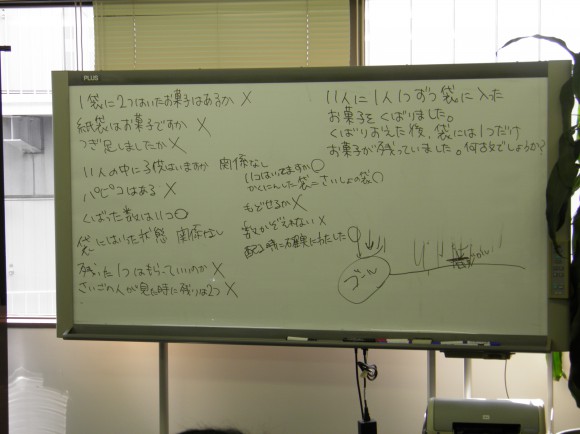 PLUS
1袋に2つはいたお菓子はあるか ×
紙袋はお菓子ですか ×
つぎ足しましたか ×
11人の中に子供はいますか 関係なし
パピコはある ×
くばった数は11コ○
袋にはいった状態 関係なし
残った1つはもらっていいのか ×
さいごの人が見た時に残りは2つ ×
11人に1人1つずつ袋に入った
お菓子をくばりました。
くばりおえた後、袋には1つだけ
お菓子が残っていました。何故でしょうか?
11コはいってますか○
かくにんした袋=さいしょの袋○
もどせるか×
数えかぞえれない×
ある時に確実にわたした○
ゴール